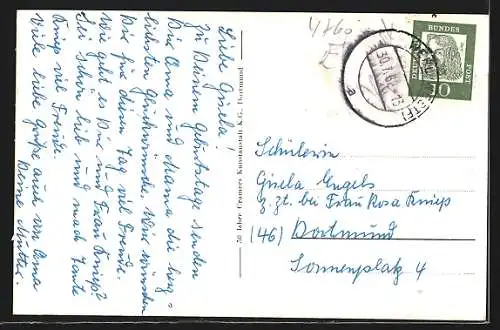 Liebe Gisela!
Zu Deinem Geburtstag senden
Dir Oma und Mama die herz-
lichsten Glückwünsche. Wir wünschen
Dir für diesen Tag viel Freude.
Wie geht es Dir und Frau Kniep?
Sei schön lieb und mach Tante
Kniep viel Freude.
Viele liebe Grüße auch von Oma
Deine Mutter.
50 Jahre Cramers Kunstanstalt K.G. Dortmund
4760
30.7.6
a
DEUTSCHE
BUNDES
POST
10
Schülerin
Gisela Engels
z. Zt. bei Frau Rosa Kniep
(46) Dortmund
Sonnenplatz 4